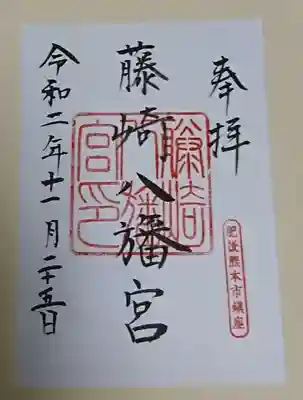 奉拝
肥後熊本市鎮座
藤崎八旛宮
藤崎八旛宮印
令和二年十一月二十五日